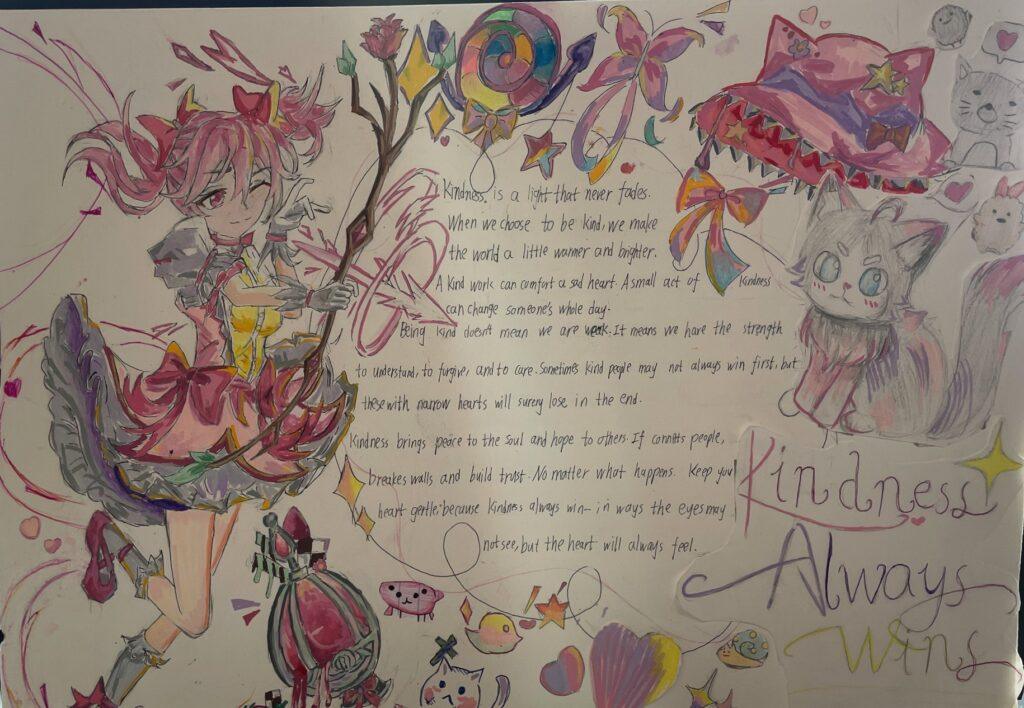 Kindness is a light that never fades.
When we choose to be kind, we make
the world a little warmer and brighter.
A kind work can comfort a sad heart. A small act of Kindness
can change someone's whole day.
Being kind doesn't mean we are weak. It means we have the strength
to understand, to forgive, and to care. Sometimes kind people may not always win first, but
these with narrow hearts will surery lose in the end.
Kindness brings peace to the soul and hope to others. If people,
breakes walls and build trust. No matter what happens. Keep you
heart gentle because kindness always win— in ways the eyes may
not see, but the heart will always feel.
Kindness
Always
Wins